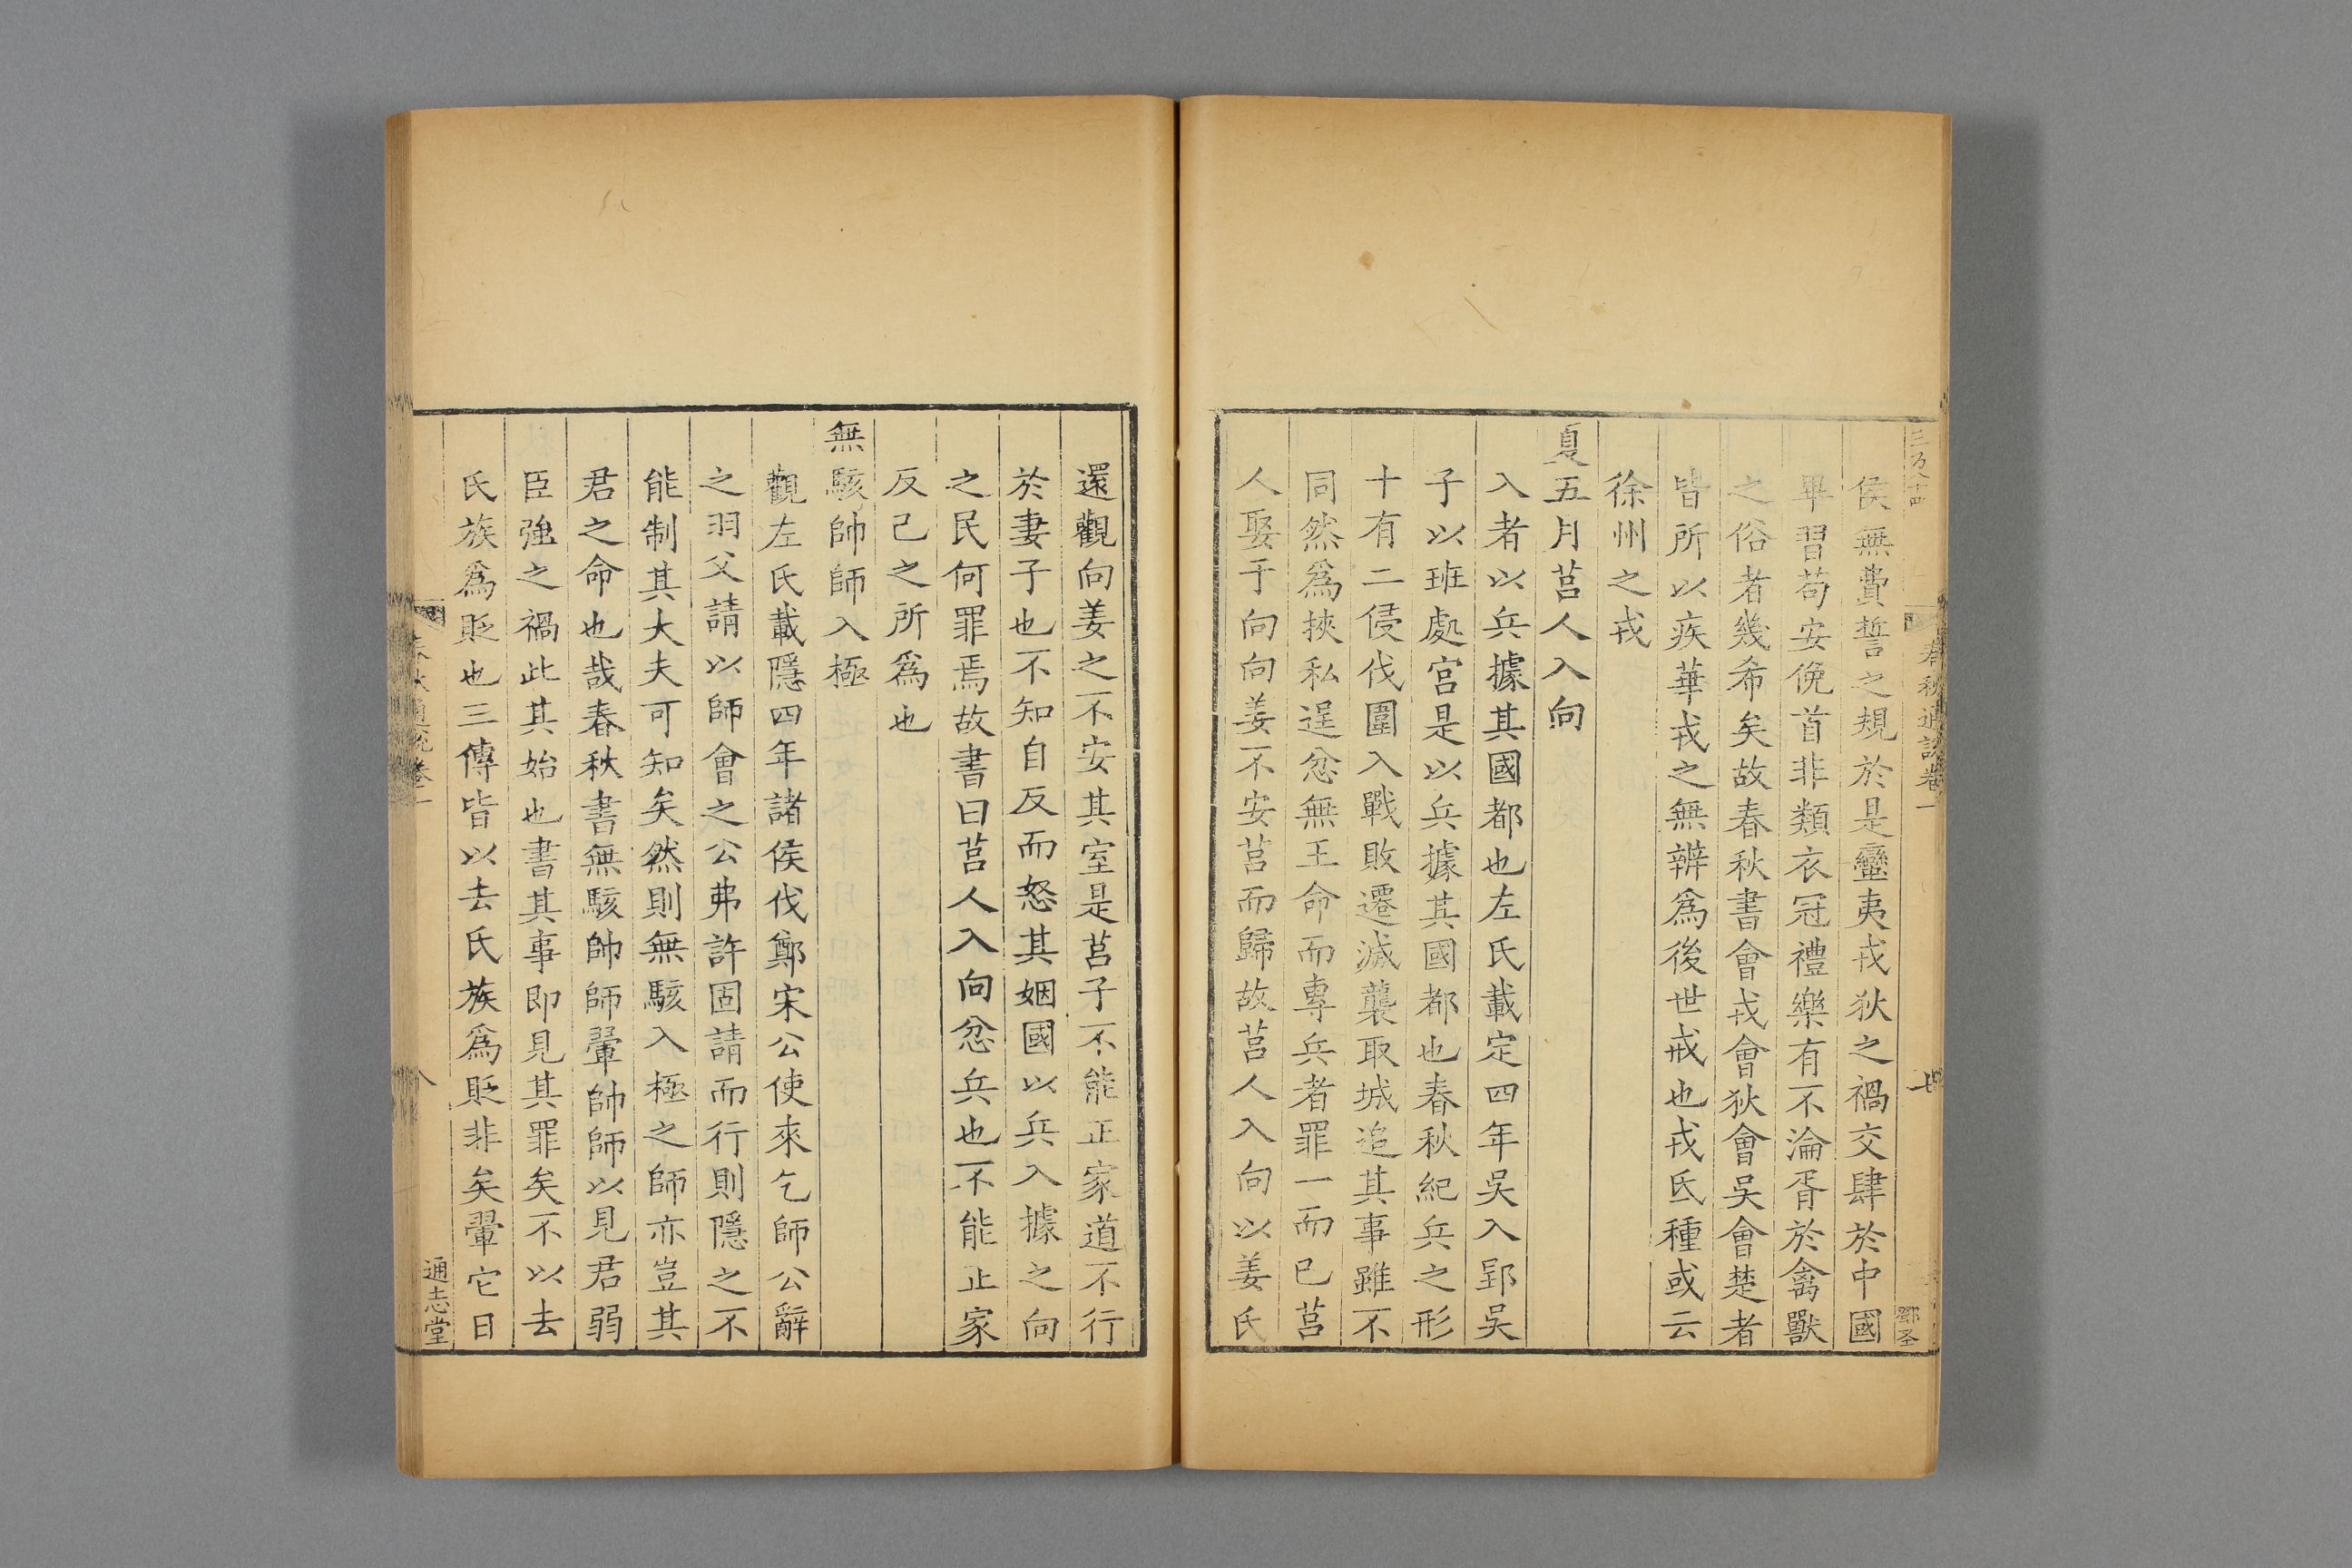 侯無費誓之規於是蠻夷戎狄之禍交肆於中國
畢習苟安俛首非類衣冠禮樂有不淪胥於禽獸
之俗者幾希矣故春秋書會戎會狄會吳會楚者
皆所以疾華戎之無辨爲後世戒也戎氐種或云
徐州之戎
夏五月莒人入向
入者以兵據其國都也左氏載定四年吳入郢吳
子以班處宮是以兵據其國都也春秋紀兵之形
十有二侵伐圍入戰敗遷滅襲取城追其事雖不
同然爲挾私逞忿無王命而專兵者罪一而已莒
人娶于向向姜不安莒而歸故莒人入向以姜氏
還觀向姜之不安其室是莒子不能正家道不行
於妻子也不知自反而怒其姻國以兵入據之向
之民何罪焉故書曰莒人入向忿兵也不能正家
反己之所爲也
無駭帥師入極
觀左氏載隱四年諸侯伐鄭宋公使來乞師公辭
之羽父請以師會之公弗許固請而行則隱之不
能制其大夫可知矣然則無駭入極之師亦豈其
君之命也哉春秋書無駭帥師翬帥師以見君弱
臣強之禍此其始也書其事即見其罪矣不以去
氏族爲貶也三傳皆以去氏族爲貶非矣翬它日
春秋通說卷一
七
八
通志堂